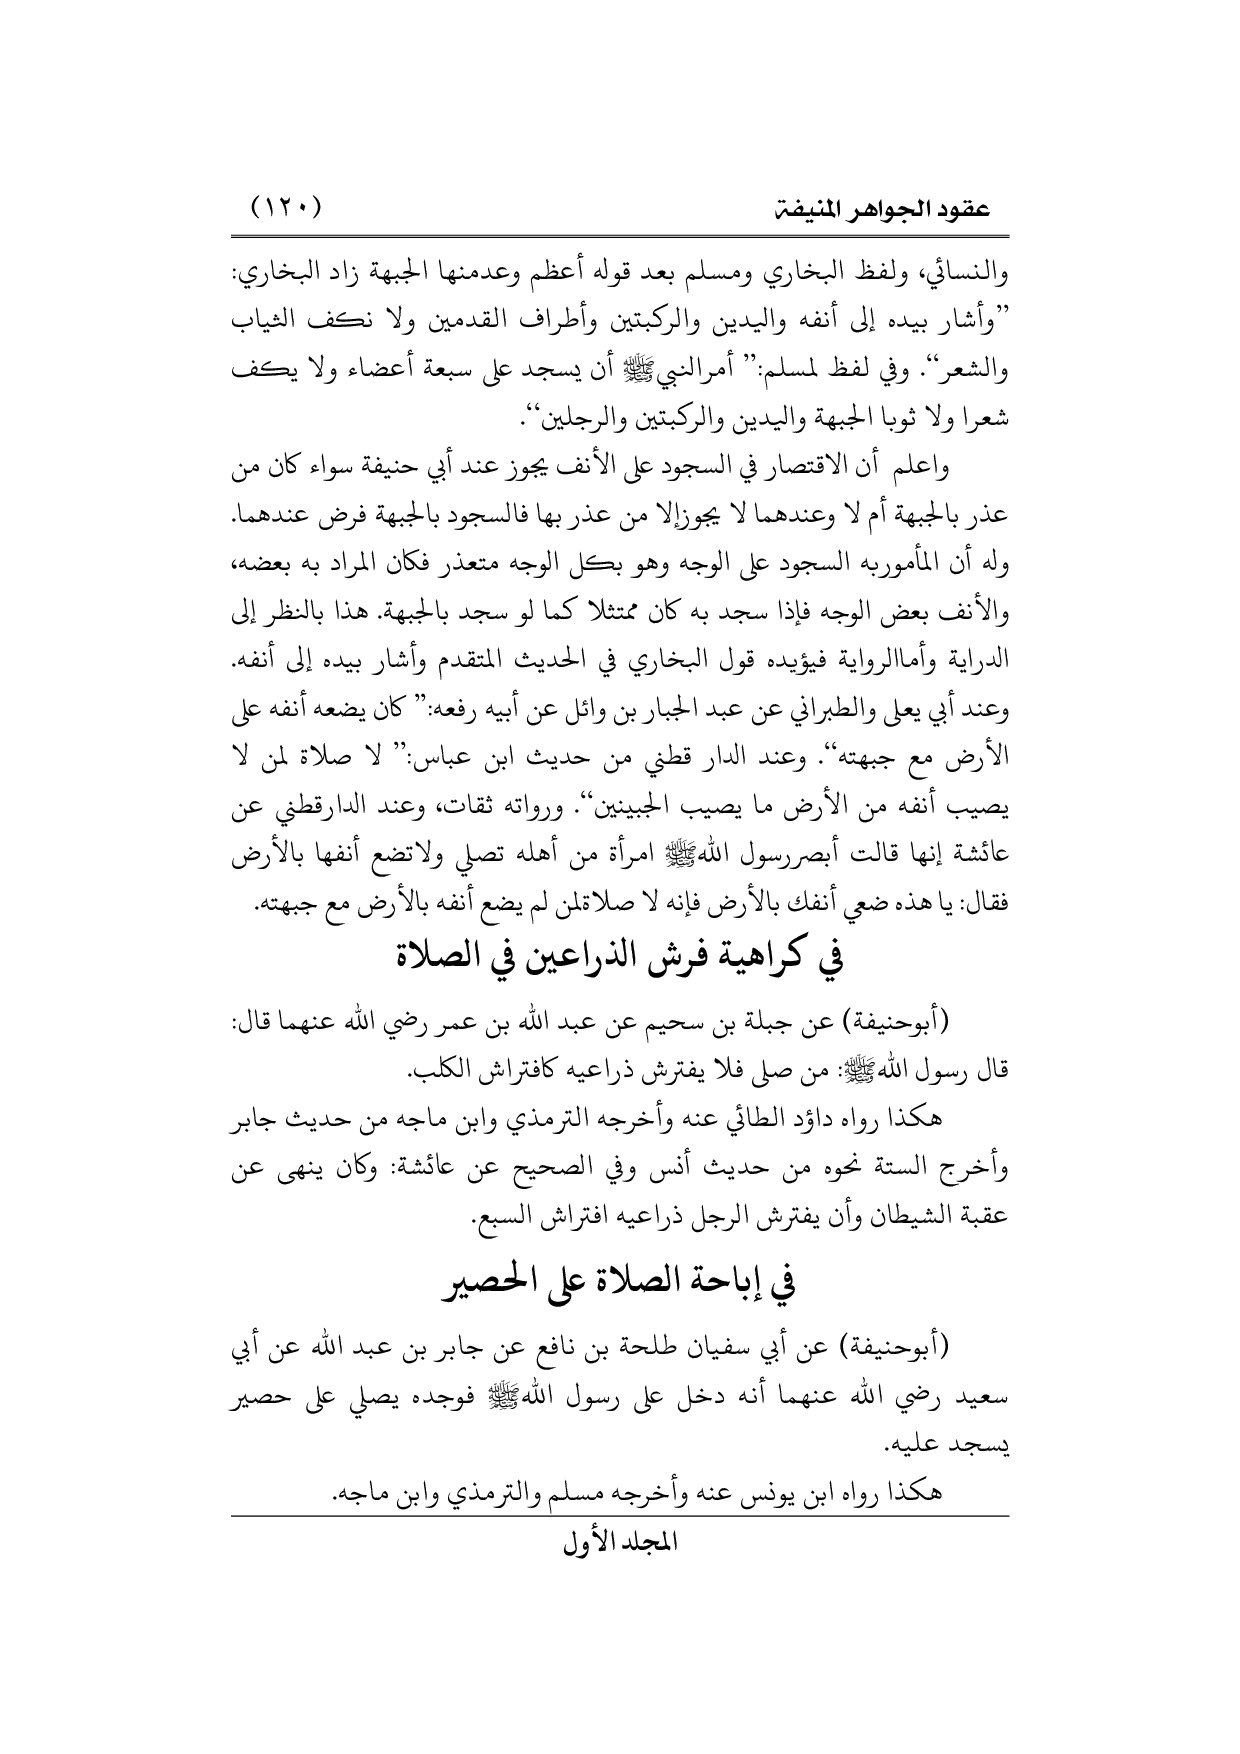 عقود الجواهر المنيفة (١٢٠)
والنسائي، ولفظ البخاري ومسلم بعد قوله أعظم وعدمنها الجبهة زاد البخاري:
”وأشار بيده إلى أنفه واليدين والركبتين وأطراف القدمين ولا نكف الثياب
والشعر“. وفي لفظ لمسلم:” أمرالنبيﷺ أن يسجد على سبعة أعضاء ولا يكف
شعرا ولا ثوبا الجبهة واليدين والركبتين والرجلين“.
واعلم أن الاقتصار في السجود على الأنف يجوز عند أبي حنيفة سواء كان من
عذر بالجبهة أم لا وعندهما لا يجوزإلا من عذر بها فالسجود بالجبهة فرض عندهما.
وله أن المأموربه السجود على الوجه وهو بكل الوجه متعذر فكان المراد به بعضه،
والأنف بعض الوجه فإذا سجد به كان ممتثلا كما لو سجد بالجبهة. هذا بالنظر إلى
الدراية وأماالرواية فيؤيده قول البخاري في الحديث المتقدم وأشار بيده إلى أنفه.
وعند أبي يعلى والطبراني عن عبد الجبار بن وائل عن أبيه رفعه:” كان يضعه أنفه على
الأرض مع جبهته“. وعند الدار قطني من حديث ابن عباس:” لا صلاة لمن لا
يصيب أنفه من الأرض ما يصيب الجبينين“. ورواته ثقات، وعند الدارقطني عن
عائشة إنها قالت أبصررسول اللهﷺ امرأة من أهله تصلي ولاتضع أنفها بالأرض
فقال: يا هذه ضعي أنفك بالأرض فإنه لا صلاةلمن لم يضع أنفه بالأرض مع جبهته.
في كراهية فرش الذراعين في الصلاة
(أبوحنيفة) عن جبلة بن سحيم عن عبد الله بن عمر رضي الله عنهما قال:
قال رسول اللهﷺ: من صلى فلا يفترش ذراعيه كافتراش الكلب.
هكذا رواه داؤد الطائي عنه وأخرجه الترمذي وابن ماجه من حديث جابر
وأخرج الستة نحوه من حديث أنس وفي الصحيح عن عائشة: وكان ينهى عن
عقبة الشيطان وأن يفترش الرجل ذراعيه افتراش السبع.
في إباحة الصلاة على الحصير
(أبوحنيفة) عن أبي سفيان طلحة بن نافع عن جابر بن عبد الله عن أبي
سعيد رضي الله عنهما أنه دخل على رسول اللهﷺ فوجده يصلي على حصير
يسجد عليه.
هكذا رواه ابن يونس عنه وأخرجه مسلم والترمذي وابن ماجه.
المجلد الأول